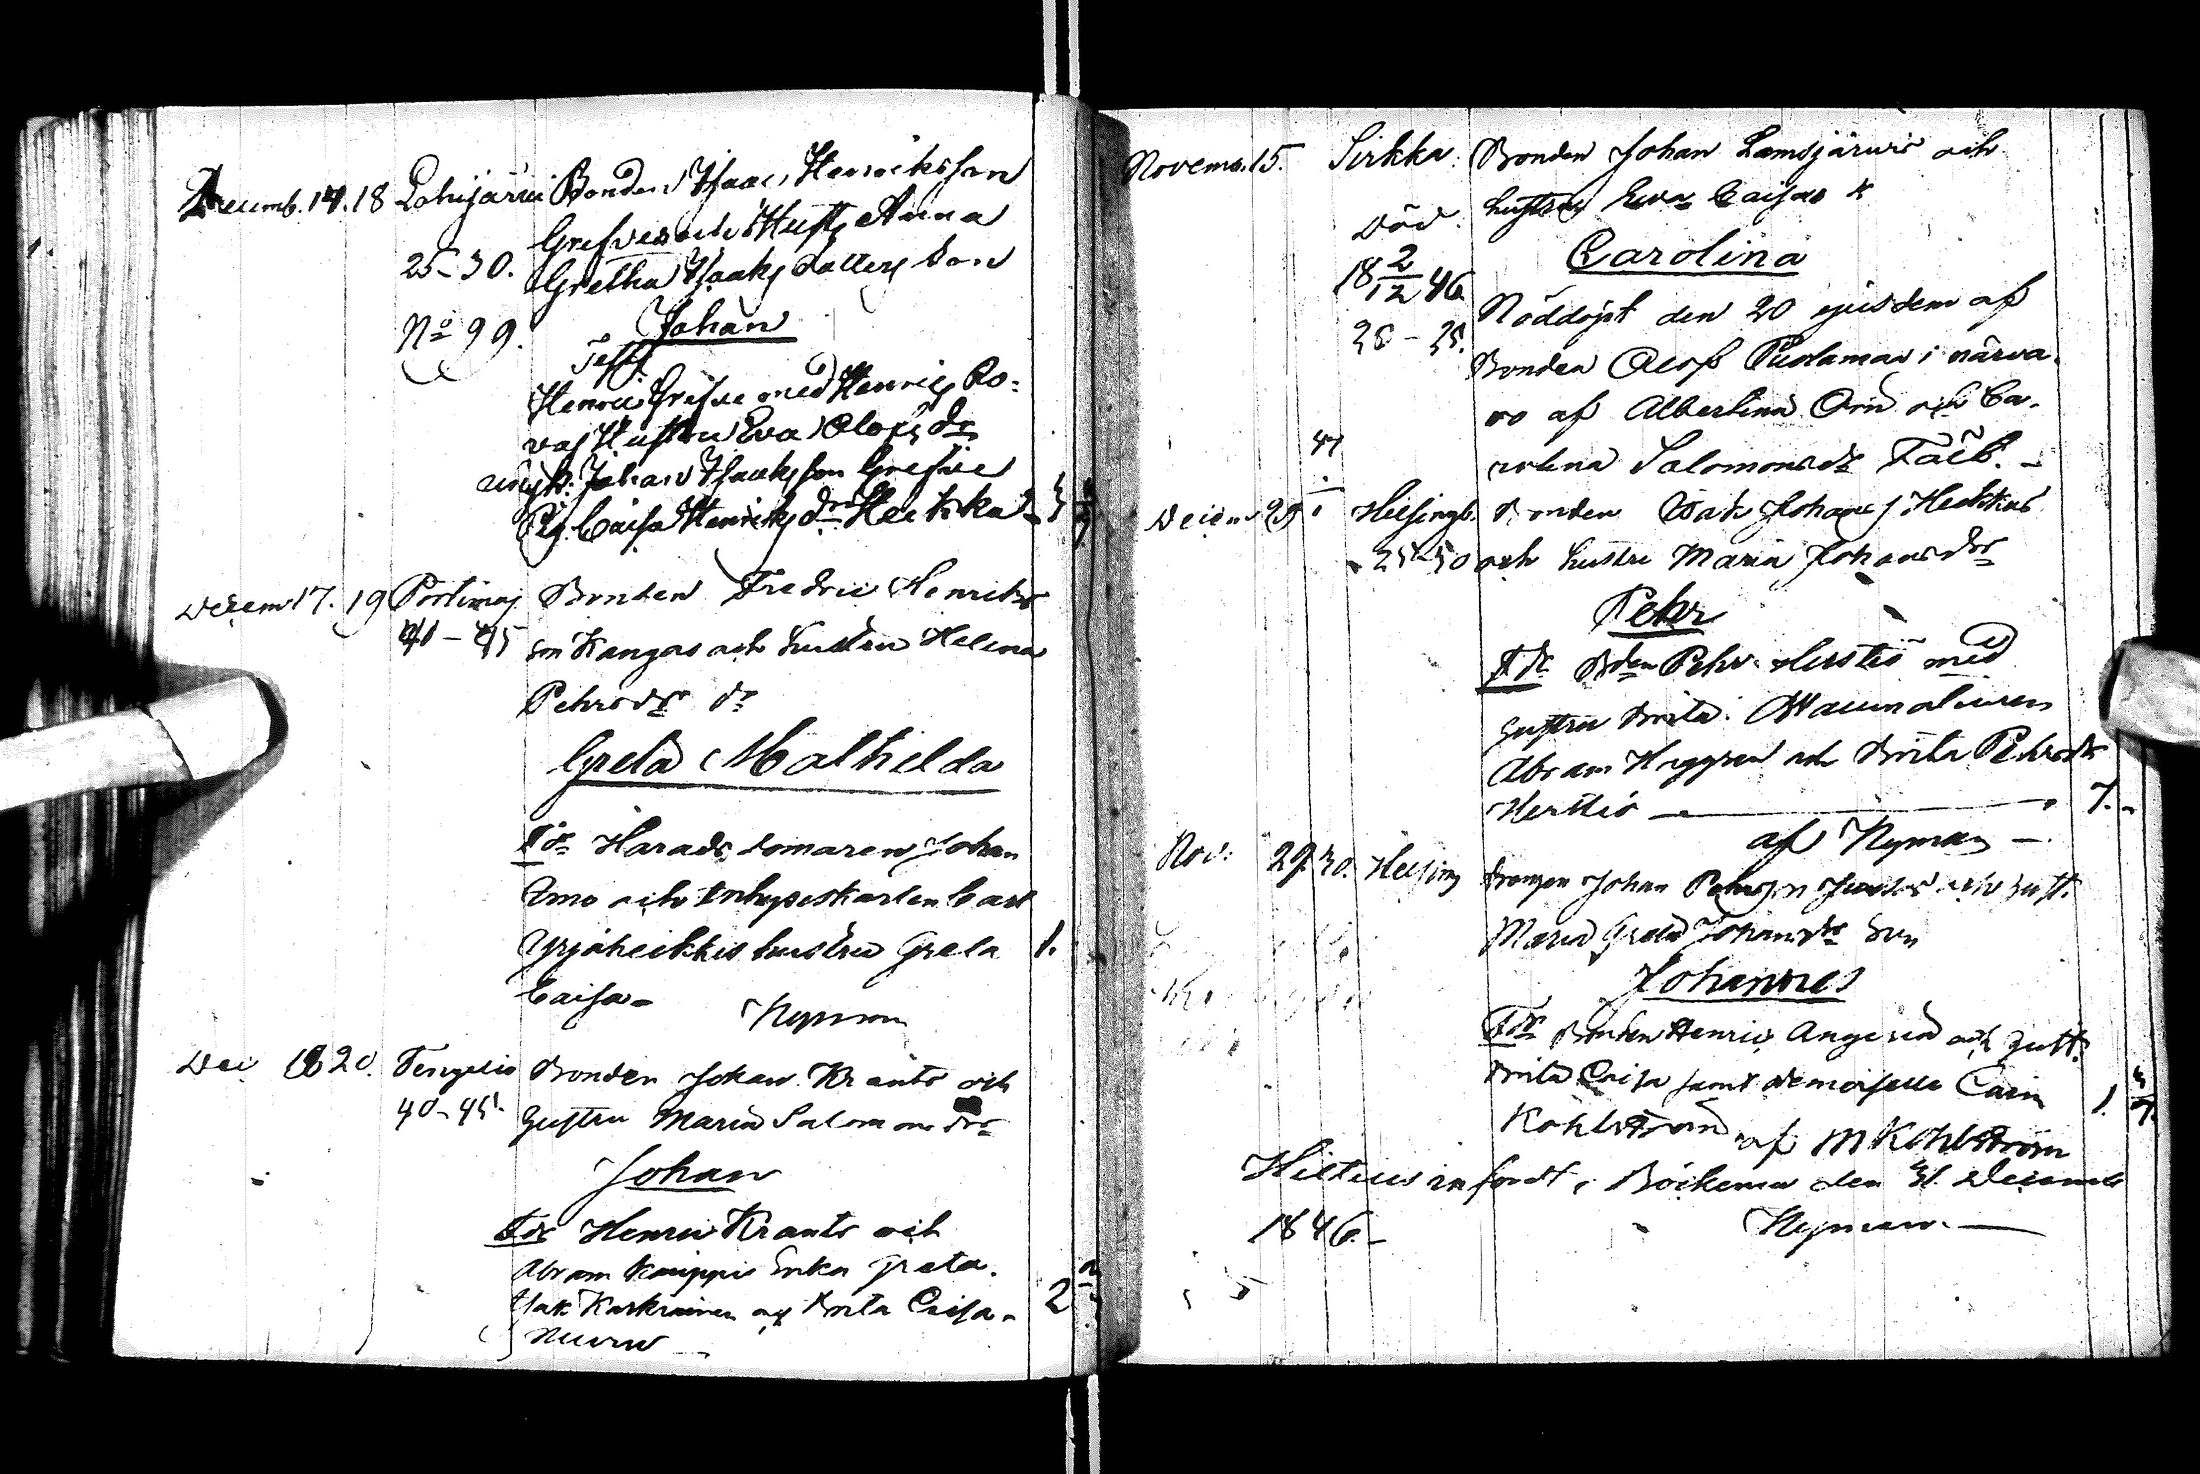 Decemb. 14. 18 Lohijärvi Bonden Isaac Henriksson
Grefve och Hustr. Anna
25-30. Gretha Isaaks dotters Son
No 99. Johan
Test
Henric Grefve med Henric Ro-
vas Hustru Eva Olofs dr
ungk: Johan Isaaksson Grefve
Pig. Caisa Henriks dr Heikka 3
Decem 17. 19 Portimoj Bonden Fredric Henriks
41-45 son Kangas och hustru Helena
Pehrsdr dr
Greta Mathilda
Fdr Häradsdomaren Johan
och Inhyseskarlen Carl
Yrjäheikkis hustru Greta 1.
Caisa-
Nyman
Dec 18 20. Tengeliö Bonden Johan Krants och
40-45. Hustru Maria Salomonsdr
Johan
Fdr Henric Krants och
Abram Kauppis Enka Greta.
Isak Karkiainen och Brita Caisa 2
Novemb. 15. Sirkka. Bonden Johan Lamsijärvis och
hustru Eva Caisas
död Carolina
18 2/12 46 Nöddöpt den 20 ejusdem af
Bonden Olof Puolamas i närva-
ro af Albertina Örn och Ca-
rolina Salomonsdr Fält. -
47
Decem 29 1 Helsingb. Bonden Isak Johans Heikkas
25-30 och hustru Maria Johansdr
Pehr
Fdr Bden Pehr Herttis med
hustru Brita.
Abram Heggren och Brita Pehrsdr
Herttis 7. -
af Nyman -
Nov: 29. 30. Helsing Drengen Johan Pehrsson och hust.
Maria Greta Johansdr Son
Johannes
Fdr Bonden Henric Angeria och hust.
Brita Caisa samt Demoiselle Carin
Kohlström 1. 3/7.
af M Kohlström
Hitills infördt, Böckerna den 31. Decemb
1846.-
Nyman. -